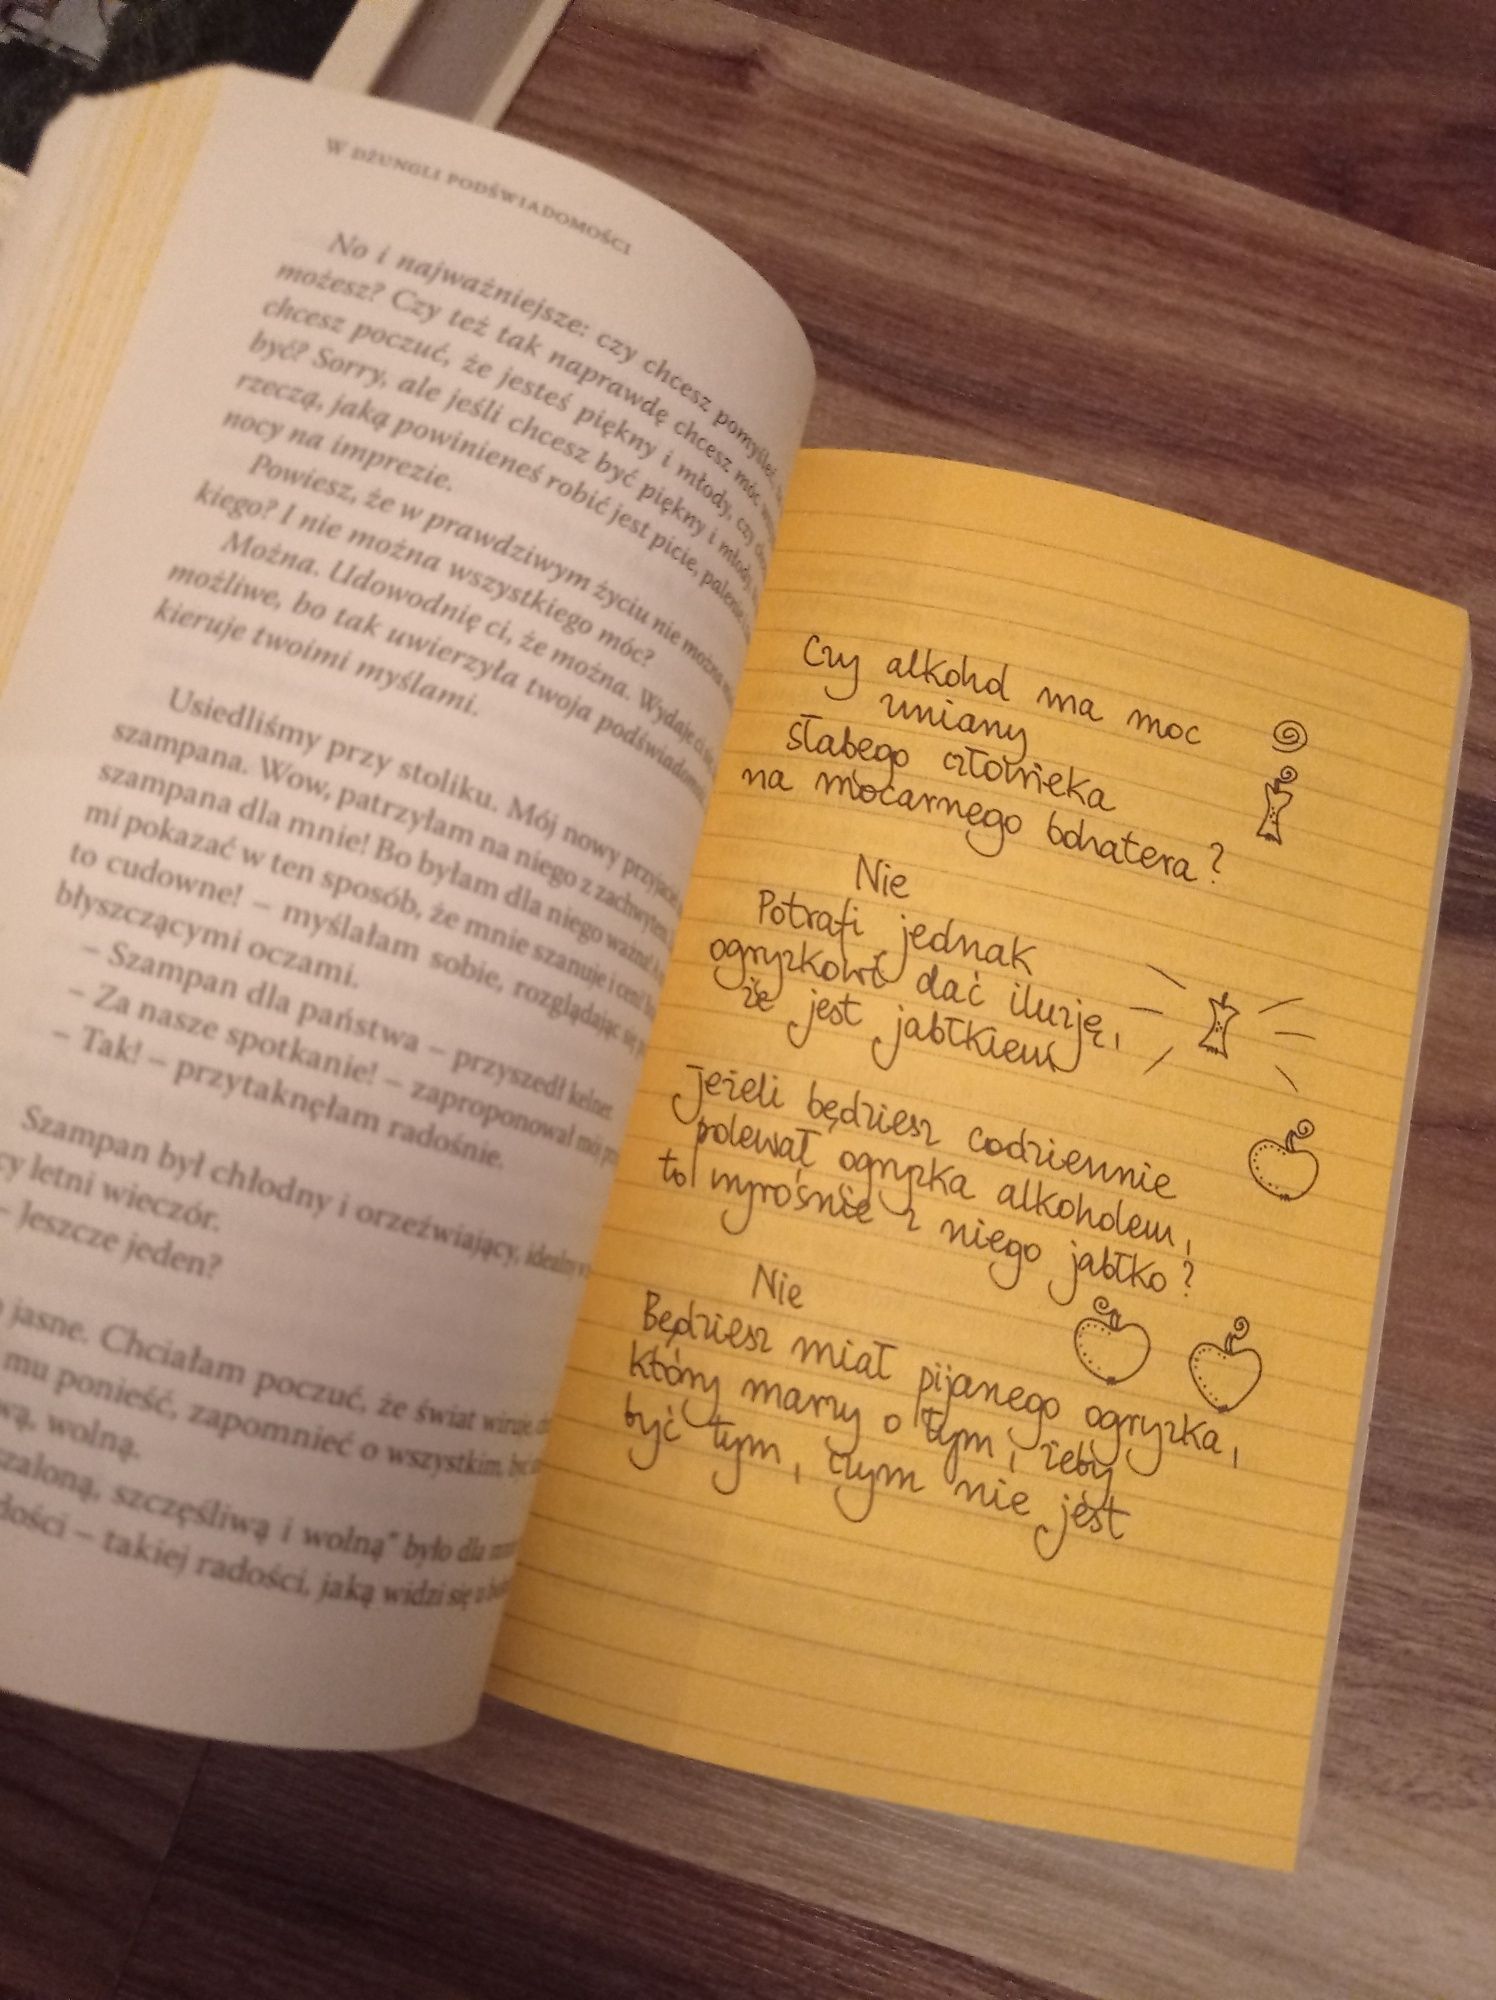 W DŻUNGLI PODŚWIADOMOŚCI
No i najważniejsze: czy chcesz pomyśleć,
możesz? Czy też tak naprawdę chcesz móc
chcesz poczuć, że jesteś piękny i młody, czy
być? Sorry, ale jeśli chcesz być piękny i młody,
rzeczą, jaką powinieneś robić jest picie, palenie
nocy na imprezie.
Powiesz, że w prawdziwym życiu nie można
kiego? I nie można wszystkiego móc?
Można. Udowodnię ci, że można. Wydaje ci się
możliwe, bo tak uwierzyła twoja podświadomość
kieruje twoimi myślami.
Usiedliśmy przy stoliku. Mój nowy przyjaciel
szampana. Wow, patrzyłam na niego z zachwytem.
szampana dla mnie! Bo byłam dla niego ważna!
mi pokazać w ten sposób, że mnie szanuje i ceni!
to cudowne! – myślałam sobie, rozglądając się
błyszczącymi oczami.
– Szampan dla państwa – przyszedł kelner.
– Za nasze spotkanie! – zaproponował mój
– Tak! – przytaknęłam radośnie.
Szampan był chłodny i orzeźwiający, idealny
cy letni wieczór.
– Jeszcze jeden?
jasne. Chciałam poczuć, że świat wiruje,
mu ponieść, zapomnieć o wszystkim, być
wą, wolną.
szaloną, szczęśliwą i wolną” było dla
dości – takiej radości, jaką widzi się u
Czy alkohol ma moc
zmiany
słabego człowieka
na mocarnego bohatera?
Nie
Potrafi jednak
ogryzkowi dać iluzję,
że jest jabłkiem
Jeżeli będziesz codziennie
polewał ogryzka alkoholem,
to wyrośnie z niego jabłko?
Nie
Będziesz miał pijanego ogryzka,
który marzy o tym, żeby
być tym, czym nie jest